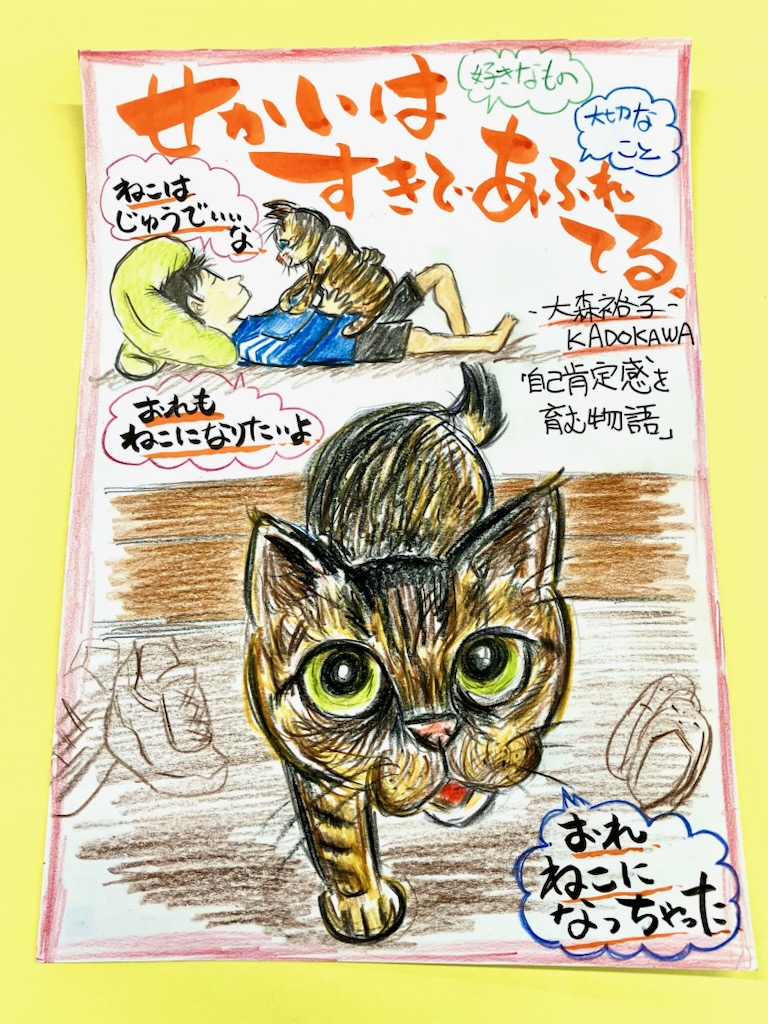 せかいは
すきで、あふれ
てる。
好きなもの
大切な
こと
ねこは
じゆうでいい
な
-大森裕子-
KADOKAWA
「自己肯定感を
育む物語」
おれも
ねこになりたいよ
おれ
ねこに
なっちゃった